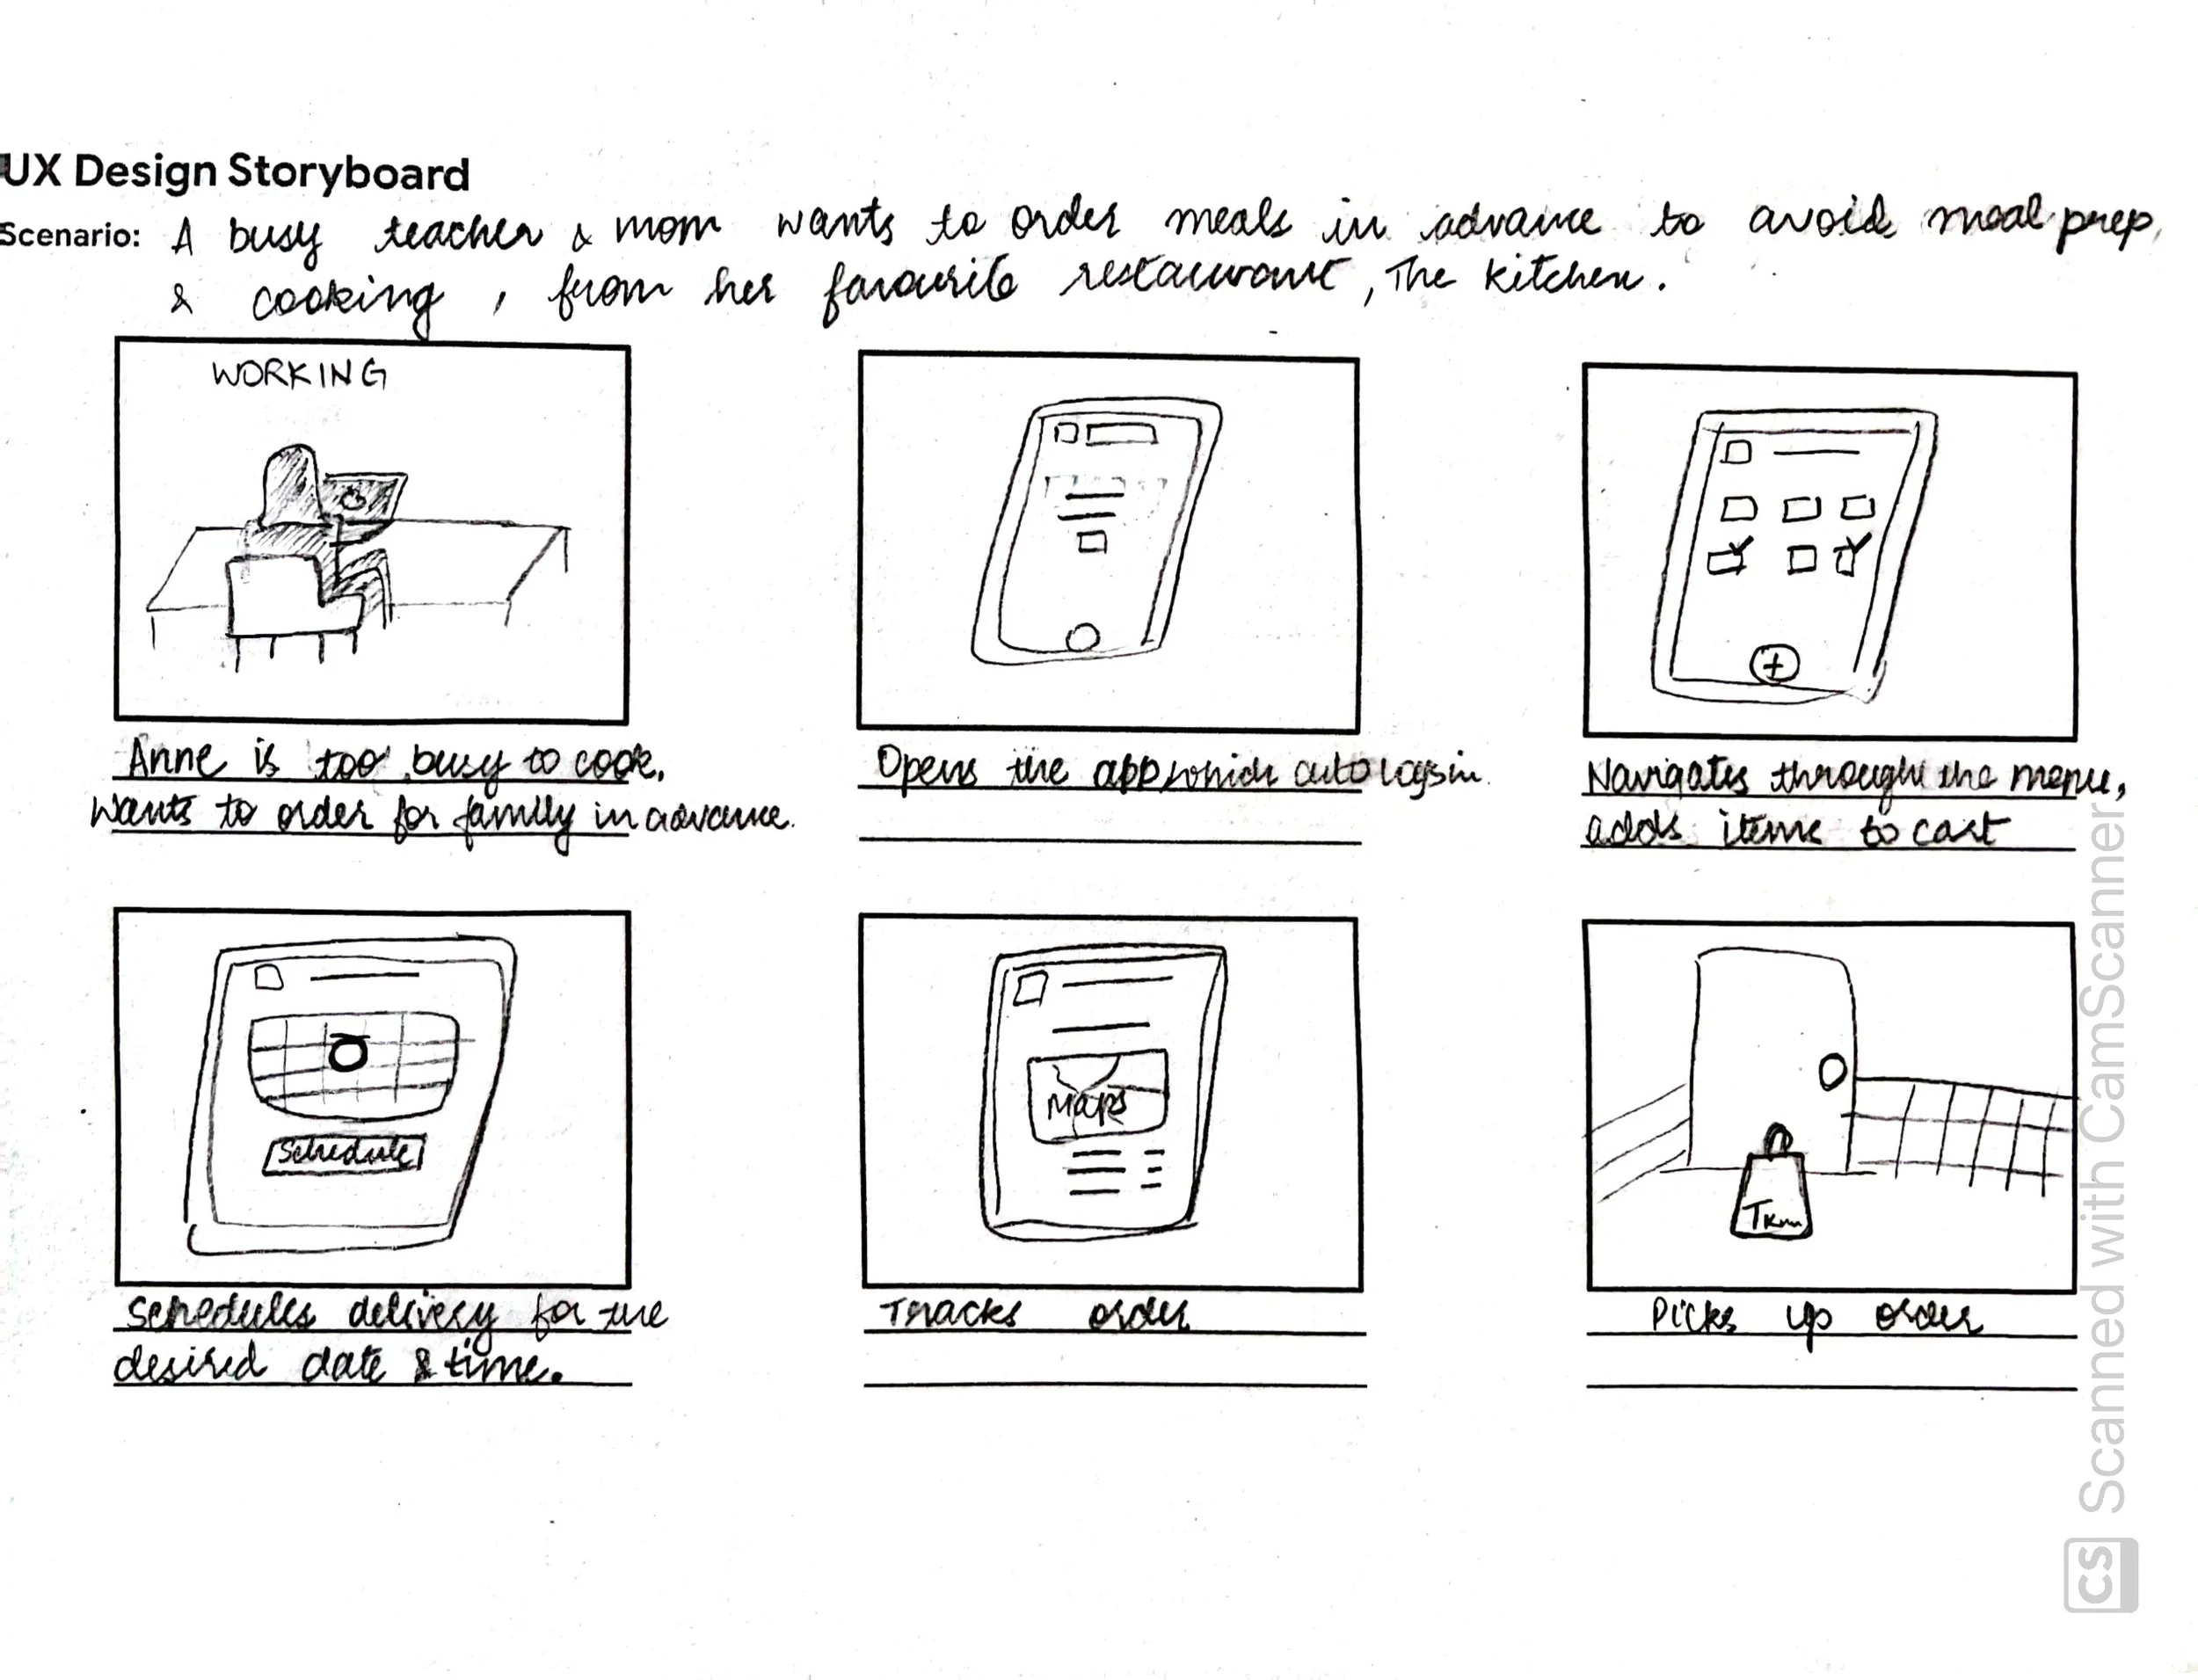 UX Design Storyboard
Scenario: A busy teacher & mom wants to order meals in advance to avoid meal prep,
& cooking, from her favourite restaurant, The Kitchen.
WORKING
Anne is too busy to cook,
wants to order for family in advance.
Opens the app which auto logs in.
Navigates through the menu,
adds items to cart
Schedule
Schedules delivery for the
desired date & time.
Maps
Tracks order
Picks up order
CS Scanned with CamScanner